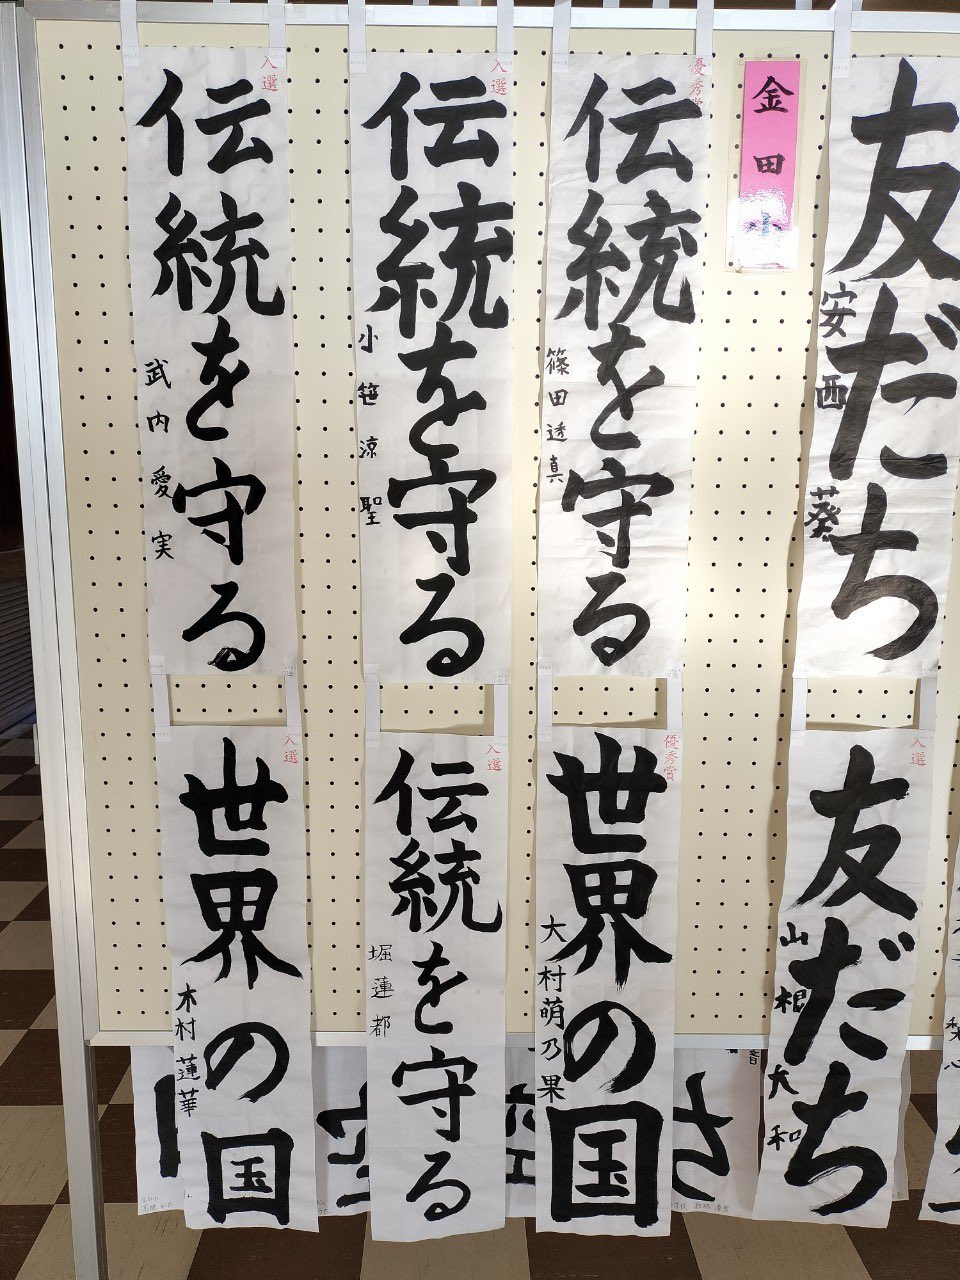 友だち
安西葵
金田小
優秀賞
伝統を守る
篠田透真
入選
伝統を守る
小笹涼聖
入選
伝統を守る
武内愛実
入選
友だち
山根大和
優秀賞
世界の国
大村萌乃果
入選
伝統を守る
堀蓮都
入選
世界の国
木村蓮華